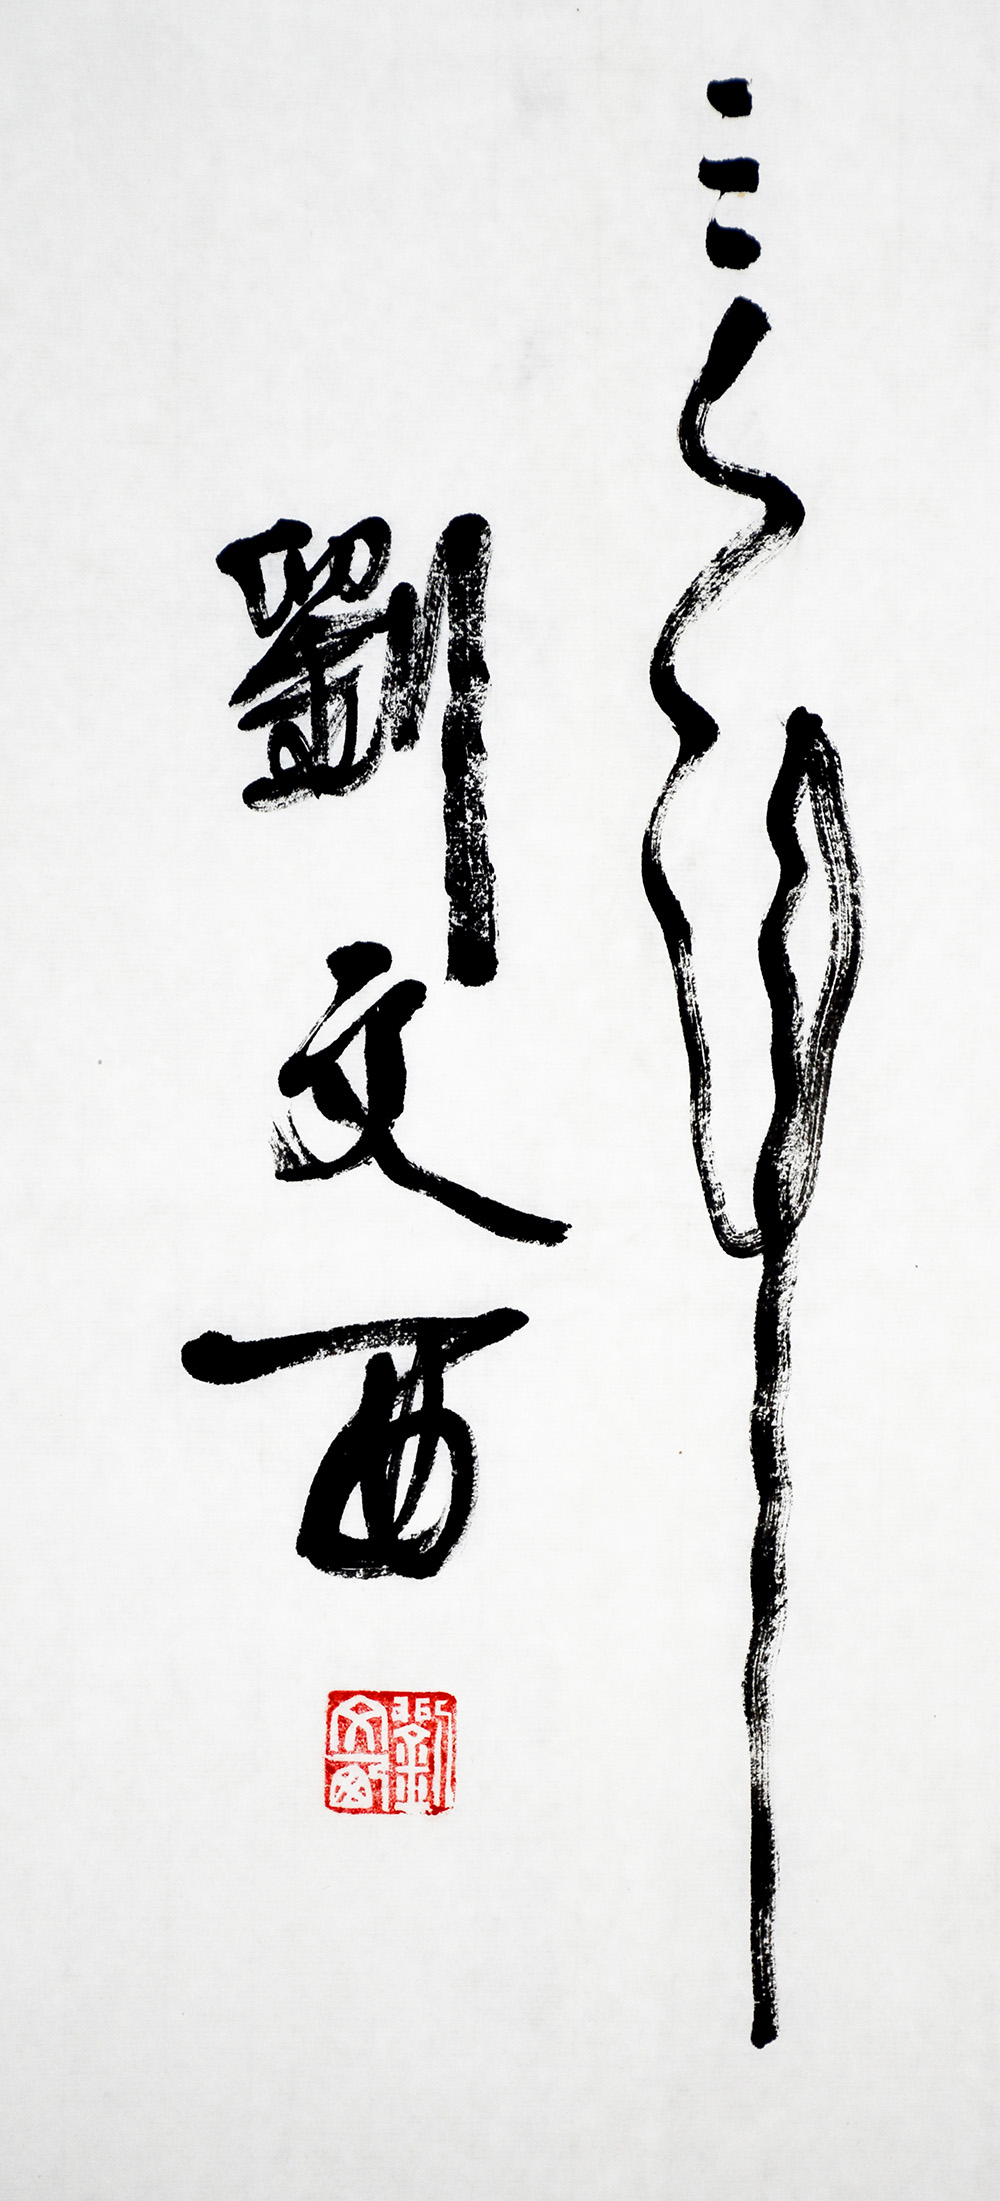 三
劉文西
劉文西